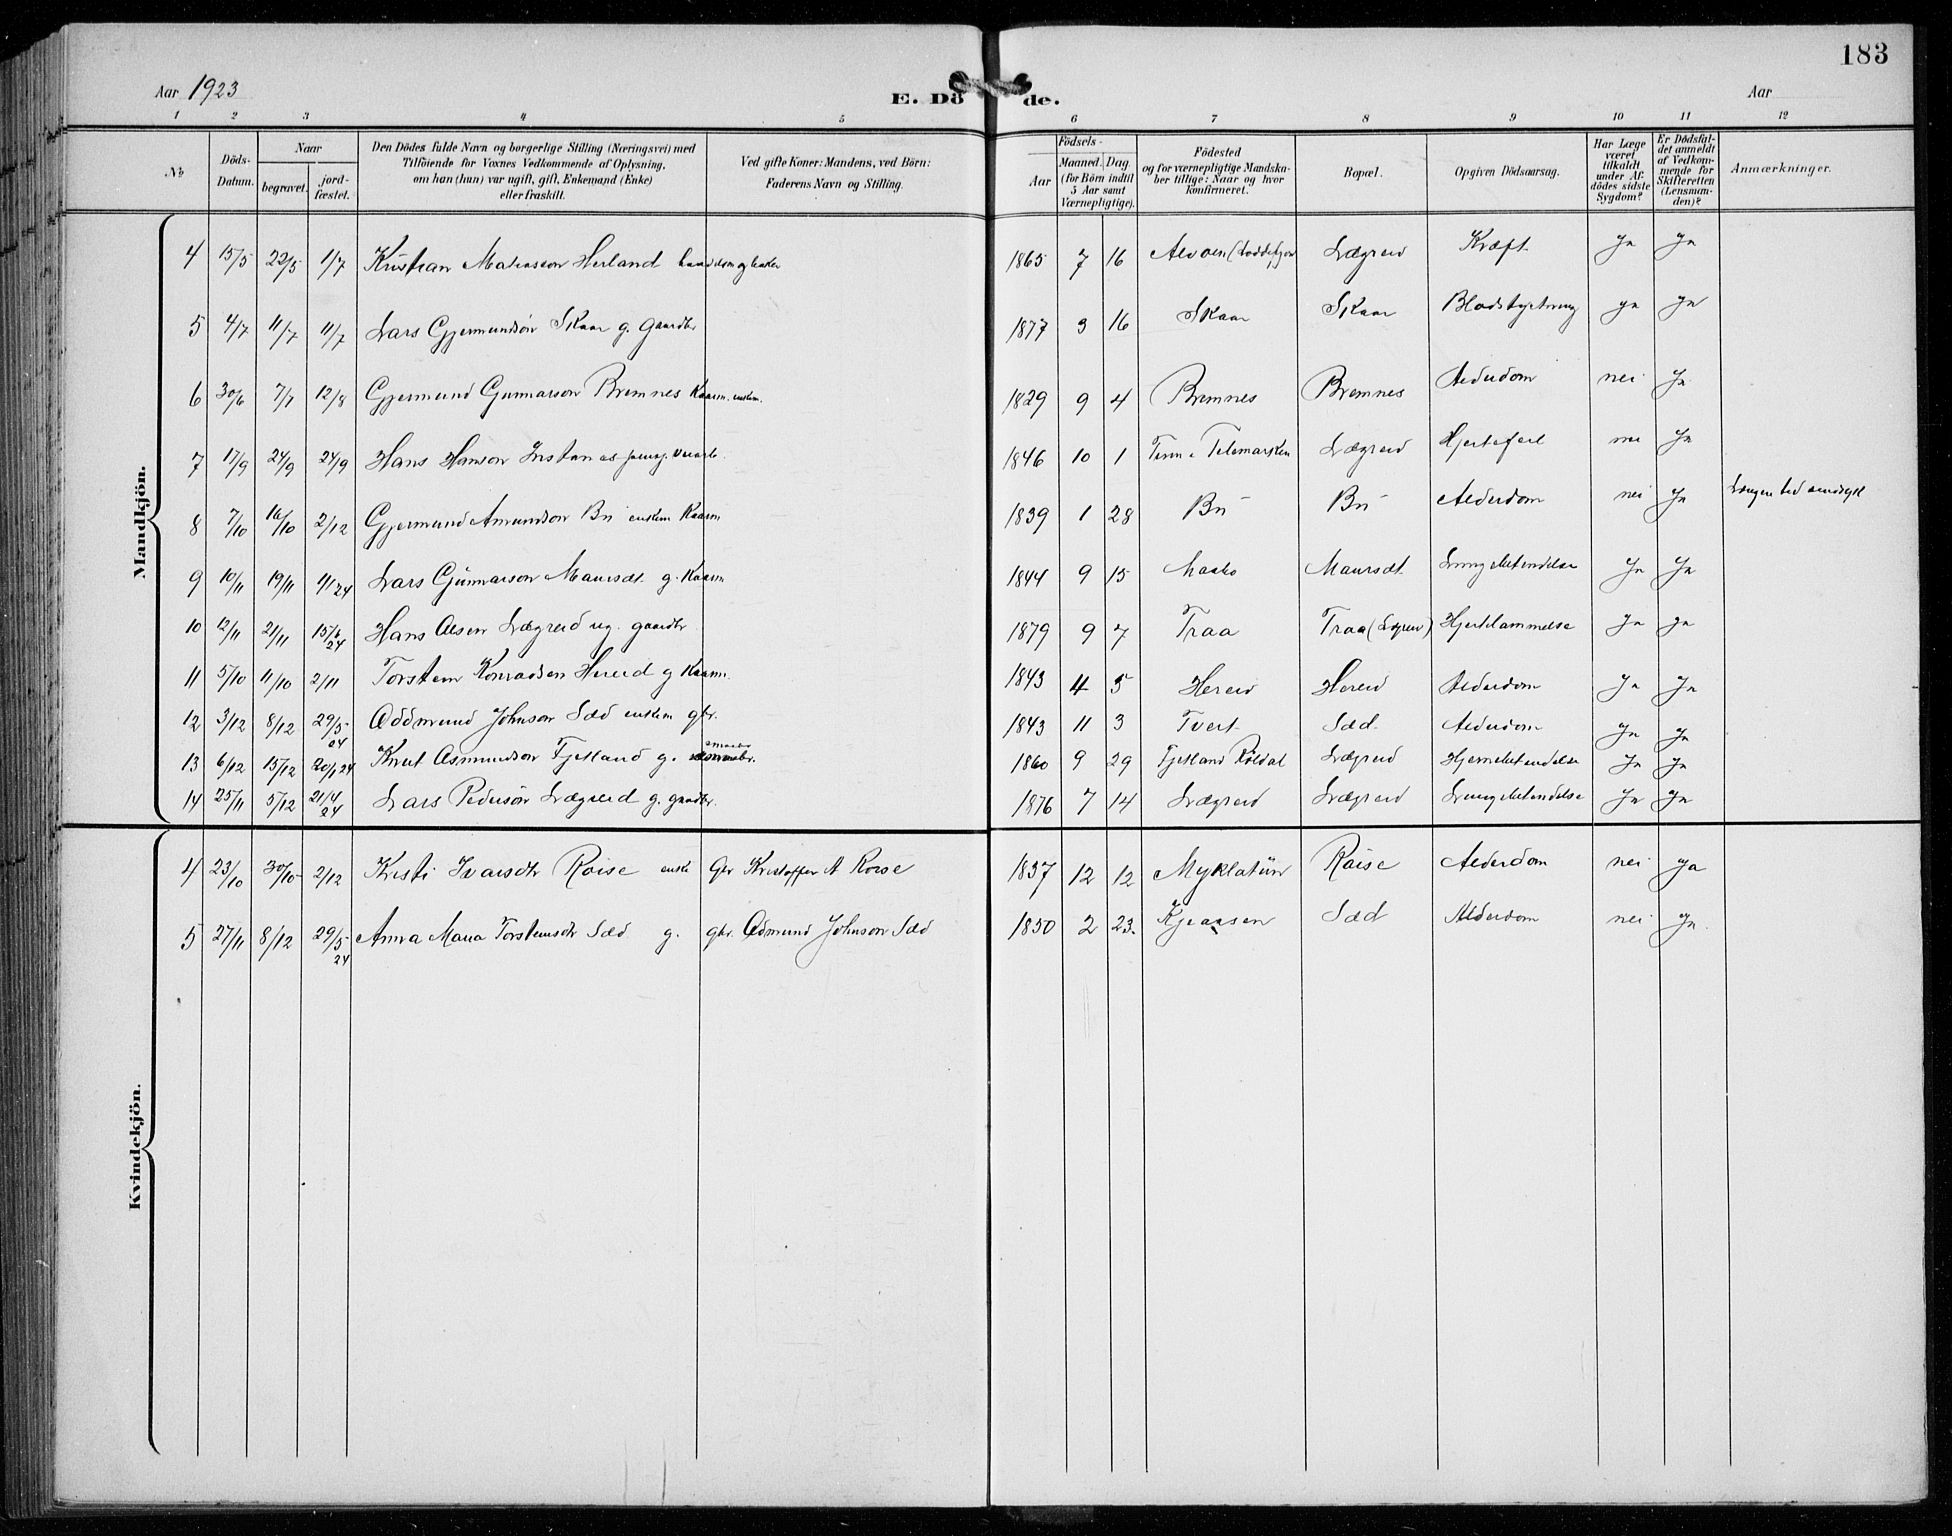 183
Aar 1923 E. Dö de. Aar
1 2 3 4 5 6 7 8 9 10 11 12
No Döds-Datum. Naar begravet. jord-fæstet. Den Dödes fulde Navn og borgerlige Stilling (Næringsvei) med Tilföiende för Voxnes Vedkommende af Oplysning, om han (hun) var ugift, gift, Enkemand (Enke) eller fraskilt. Ved gifte Koner: Mandens, ved Börn: Faderens Navn og Stilling. Födsels- Aar Maaned. Dag. (for Börn indtil 5 Aar samt Værnepligtige). Födested og for værnepligtige Mandska-ber tillige: Naar og hvor Konfirmeret. Bopæl. Opgiven Dödsaarsag. Har Læge været tilkaldt under Af-dödes sidste Sygdom? Er Dödsfal-det anmeldt af Vedkom-mende for Skifteretten (Lensman-den)? Anmærkninger.
Mandkjön.
4 15/5 22/5 1/7 Kristian Herland 1865 7 16 Lægreid Kræft Ja Ja
5 4/7 11/7 11/7 Lars Gjermundsön Skaar g. gaardbr 1877 3 16 Skaar Skaar Blodstyrtning Ja Ja
6 30/6 7/7 12/8 Gjermund Gunnarson Bremnes Kaarm. enkem. 1829 9 4 Bremnes Bremnes Alderdom nei Ja
7 17/9 24/9 24/9 Hans Hanson 1846 10 1 Telemarken Lægreid Hjertefeil nei Ja
8 7/10 16/10 2/12 Gjermund Amundson Bu enkem Kaarm 1839 1 28 Bu Bu Alderdom nei Ja
9 10/11 19/11 1/1 24 Lars Gunnarson Maursæt g. Kaarm 1844 9 15 Maursæt Lungebetændelse Ja Ja
10 12/11 21/11 15/6 24 Hans Olsen Lægreid ug. gaardbr 1879 9 7 Traa Traa (Lægreid) Hjertelammelse Ja Ja
11 5/10 11/10 2/11 Torstein Konradsen Hereid g Kaarm. 1843 4 5 Hereid Hereid Alderdom Ja Ja
12 3/12 8/12 29/5 24 Oddmund Johnson Sæd enkem gbr. 1843 11 3 Tveit Sæd Alderdom Ja Ja
13 6/12 15/12 20/1 24 Knut Asmundson Fjetland g. 1860 9 29 Fjetland Röldal Lægreid Hjernebetændelse Ja Ja
14 25/11 5/12 21/4 24 Lars Pedersön Lægreid g. gaardbr. 1876 7 14 Lægreid Lægreid Lungebetændelse Ja Ja
Kvindekjön.
4 23/10 30/10 2/12 Kristi Ivarsdtr Röise enke Gbr Kristoffer A Röise 1837 12 12 Myklatün Röise Alderdom nei Ja
5 27/11 8/12 29/5 24 Anna Maria Torsteinsdtr Sæd g. gbr. Odmund Johnson Sæd 1850 2 23. Kjeaasen Sæd Alderdom nei Ja